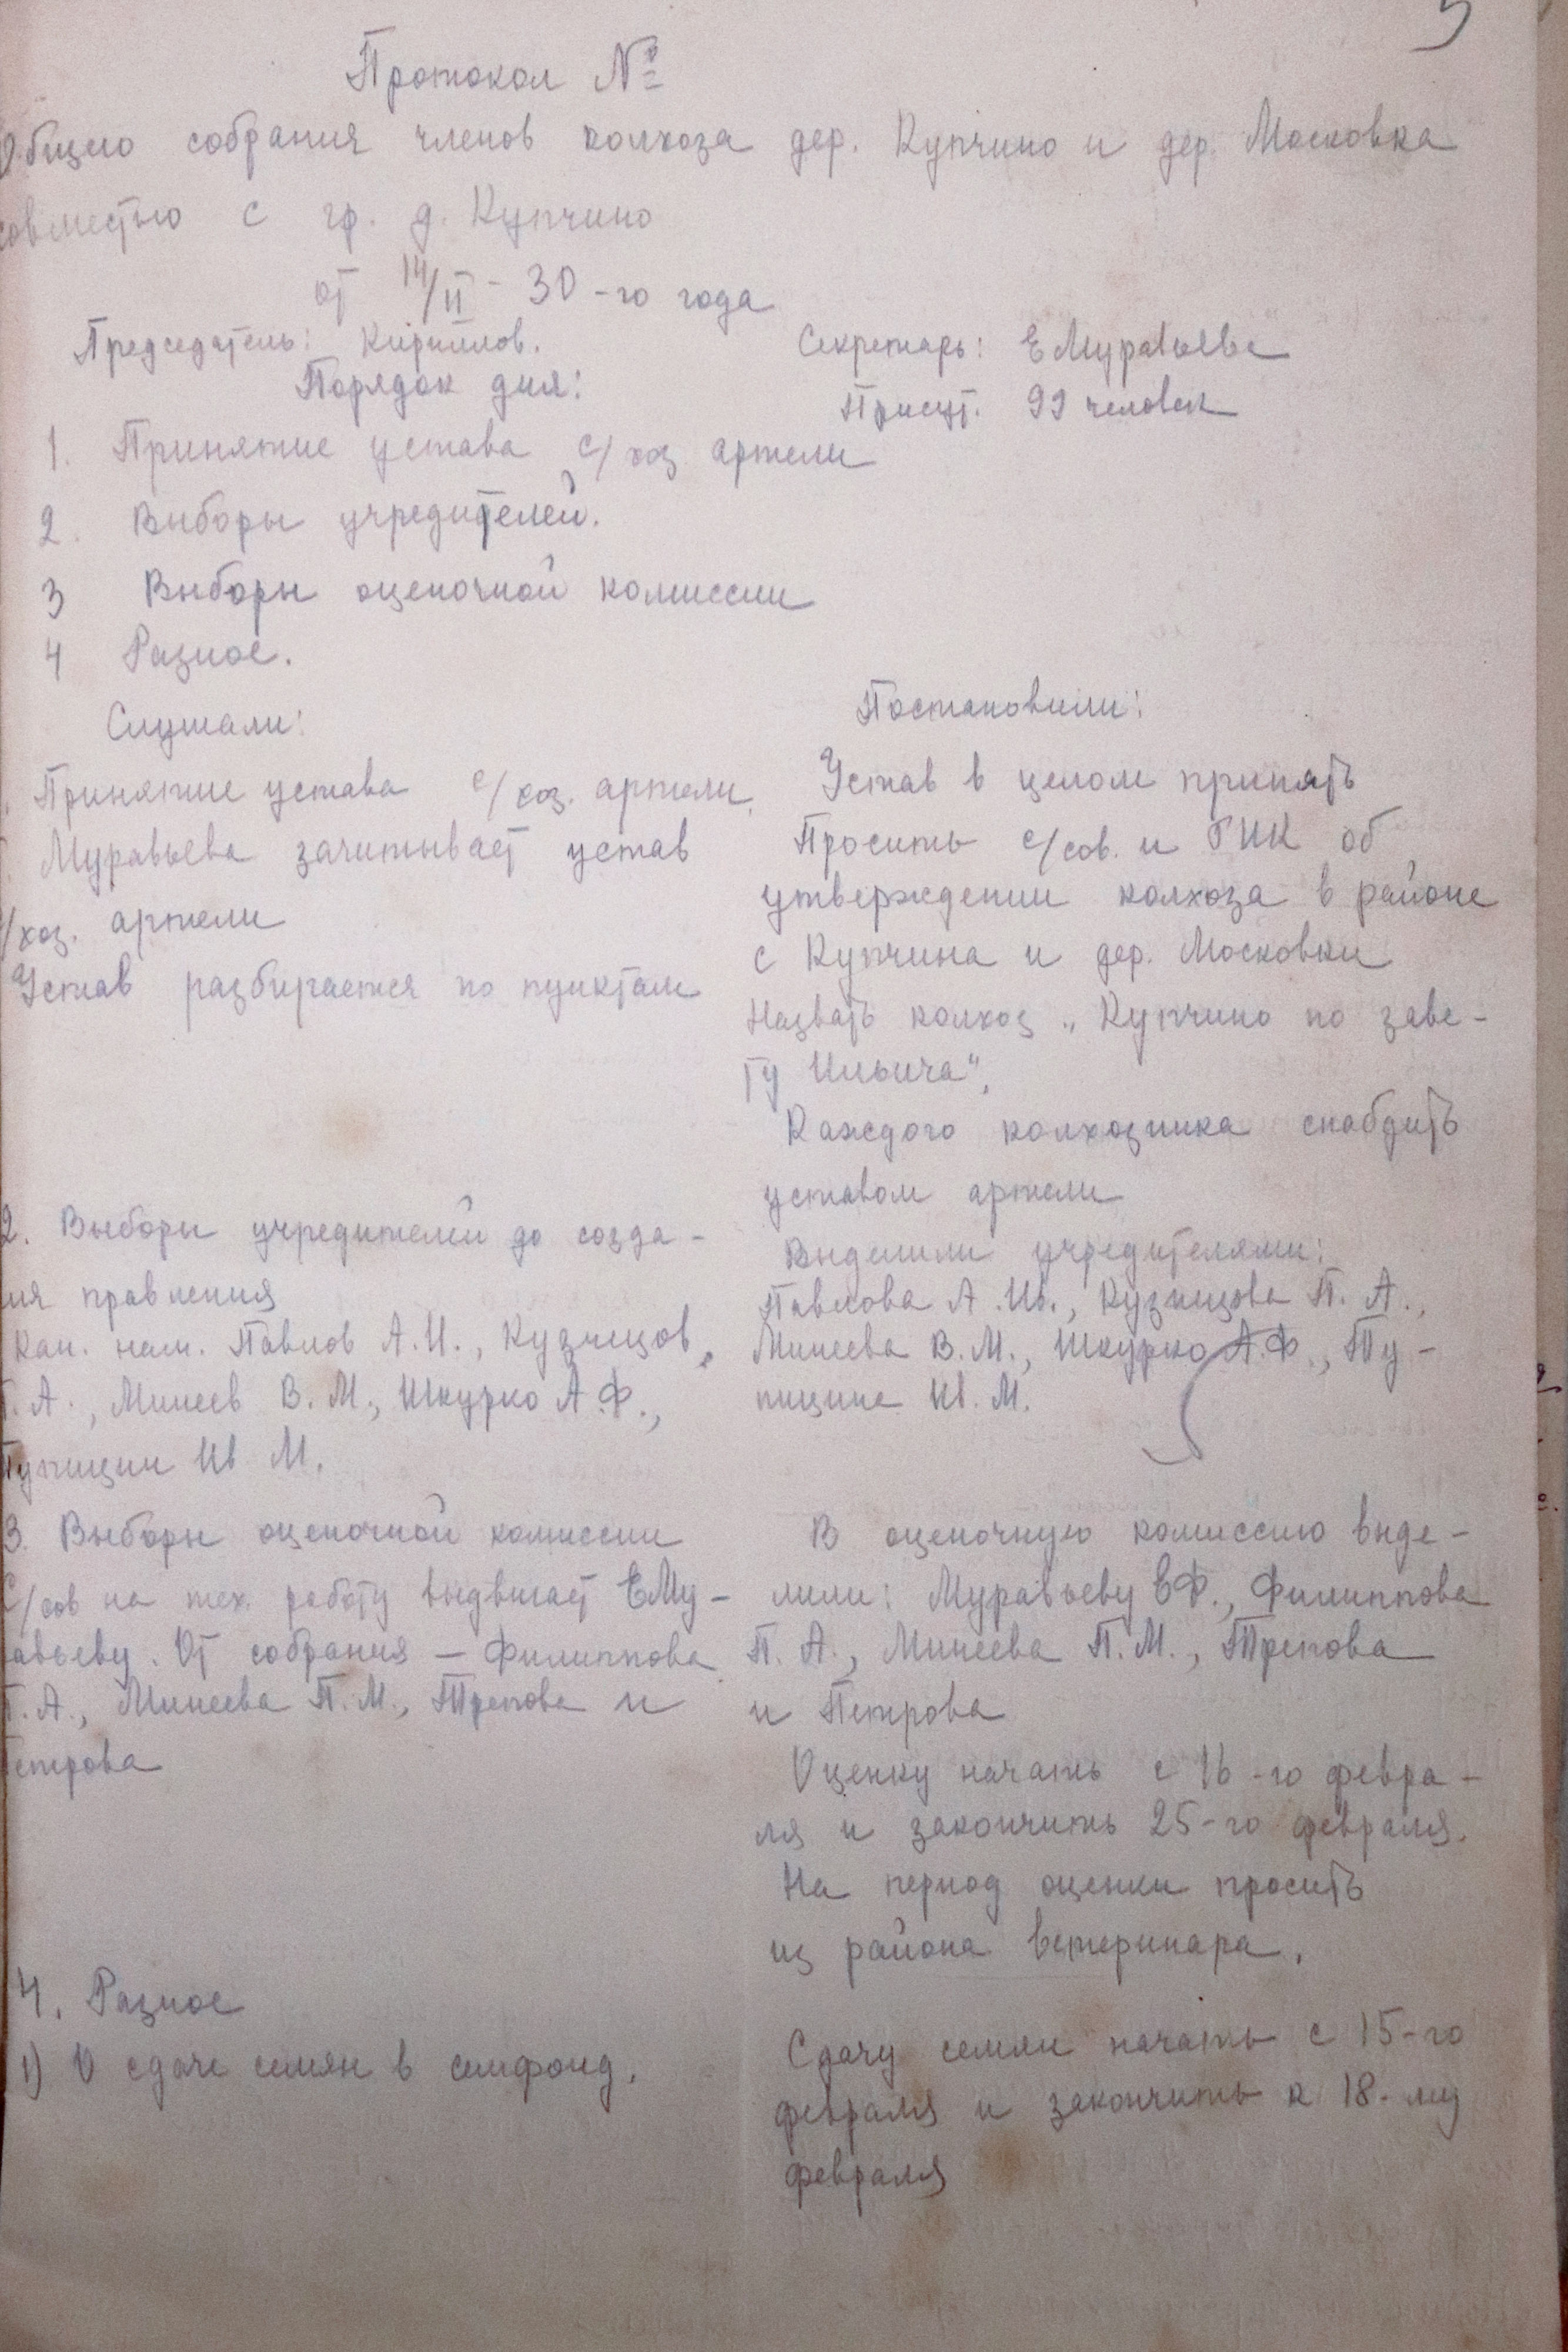 5
Протокол №
Общего собрания членов колхоза дер. Купчино и дер. Московка
совместно с гр. д. Купчино
от 14/II - 30-го года
Председатель: Кириллов.
Секретарь: ЕМуравьева
Порядок дня:
Присут. 99 человек
1. Принятие устава с/хоз артели
2. Выборы учредителей.
3 Выборы оценочной комиссии
4 Разное.
Слушали:
Принятие устава с/хоз. артели.
Муравьева зачитывает устав
с/хоз. артели
Устав разбирается по пунктам
Постановили:
Устав в целом принять
Просить с/сов. и РИК об
утверждении колхоза в районе
с Купчина и дер. Московки
Назвать колхоз „Купчино по заве-
ту Ильича".
Каждого колхозника снабдить
уставом артели
2. Выборы учредителей до созда-
ия правления
Кан. нам. Павлов А.И., Кузнецов
П.А., Минеев В.М., Шкурко А.Ф.,
Тупицин Ив М.
Выделили учредителями:
Павлова А.Ив., Кузнецова П.А.,
Минеева В.М., Шкурко А.Ф., Ту-
пицина Ив. М.
3. Выборы оценочной комиссии
С/сов на тех. работу выдвигает ЕМу-
равьеву. От собрания - Филиппова
П.А., Минеева П.М., Трепова и
Петрова
В оценочную комиссию выде-
лили: Муравьеву ЕФ., Филиппова
П.А., Минеева П.М., Трепова
и Петрова
Оценку начать с 16-го февра-
ля и закончить 25-го февраля.
На период оценки просить
из района ветеринара.
4. Разное
1) О сдаче семян в семфонд.
Сдачу семян начать с 15-го
февраля и закончить к 18-му
февраля